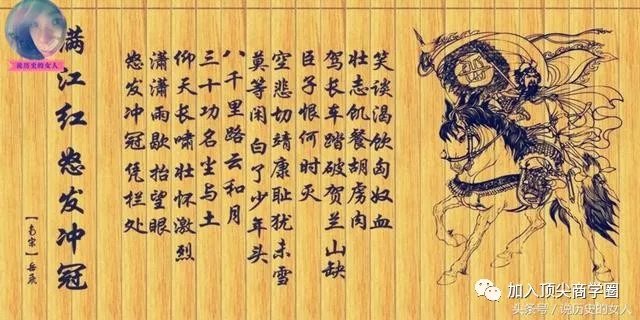 说历史的女人
满江红 怒发冲冠
【南宋】岳飞
怒发冲冠凭栏处
潇潇雨歇抬望眼
仰天长啸壮怀激烈
三十功名尘与土
八千里路云和月
莫等闲白了少年头
空悲切靖康耻犹未雪
臣子恨何时灭
驾长车踏破贺兰山缺
壮志饥餐胡虏肉
笑谈渴饮匈奴血
加入顶尖商学圈
头条号/说历史的女人